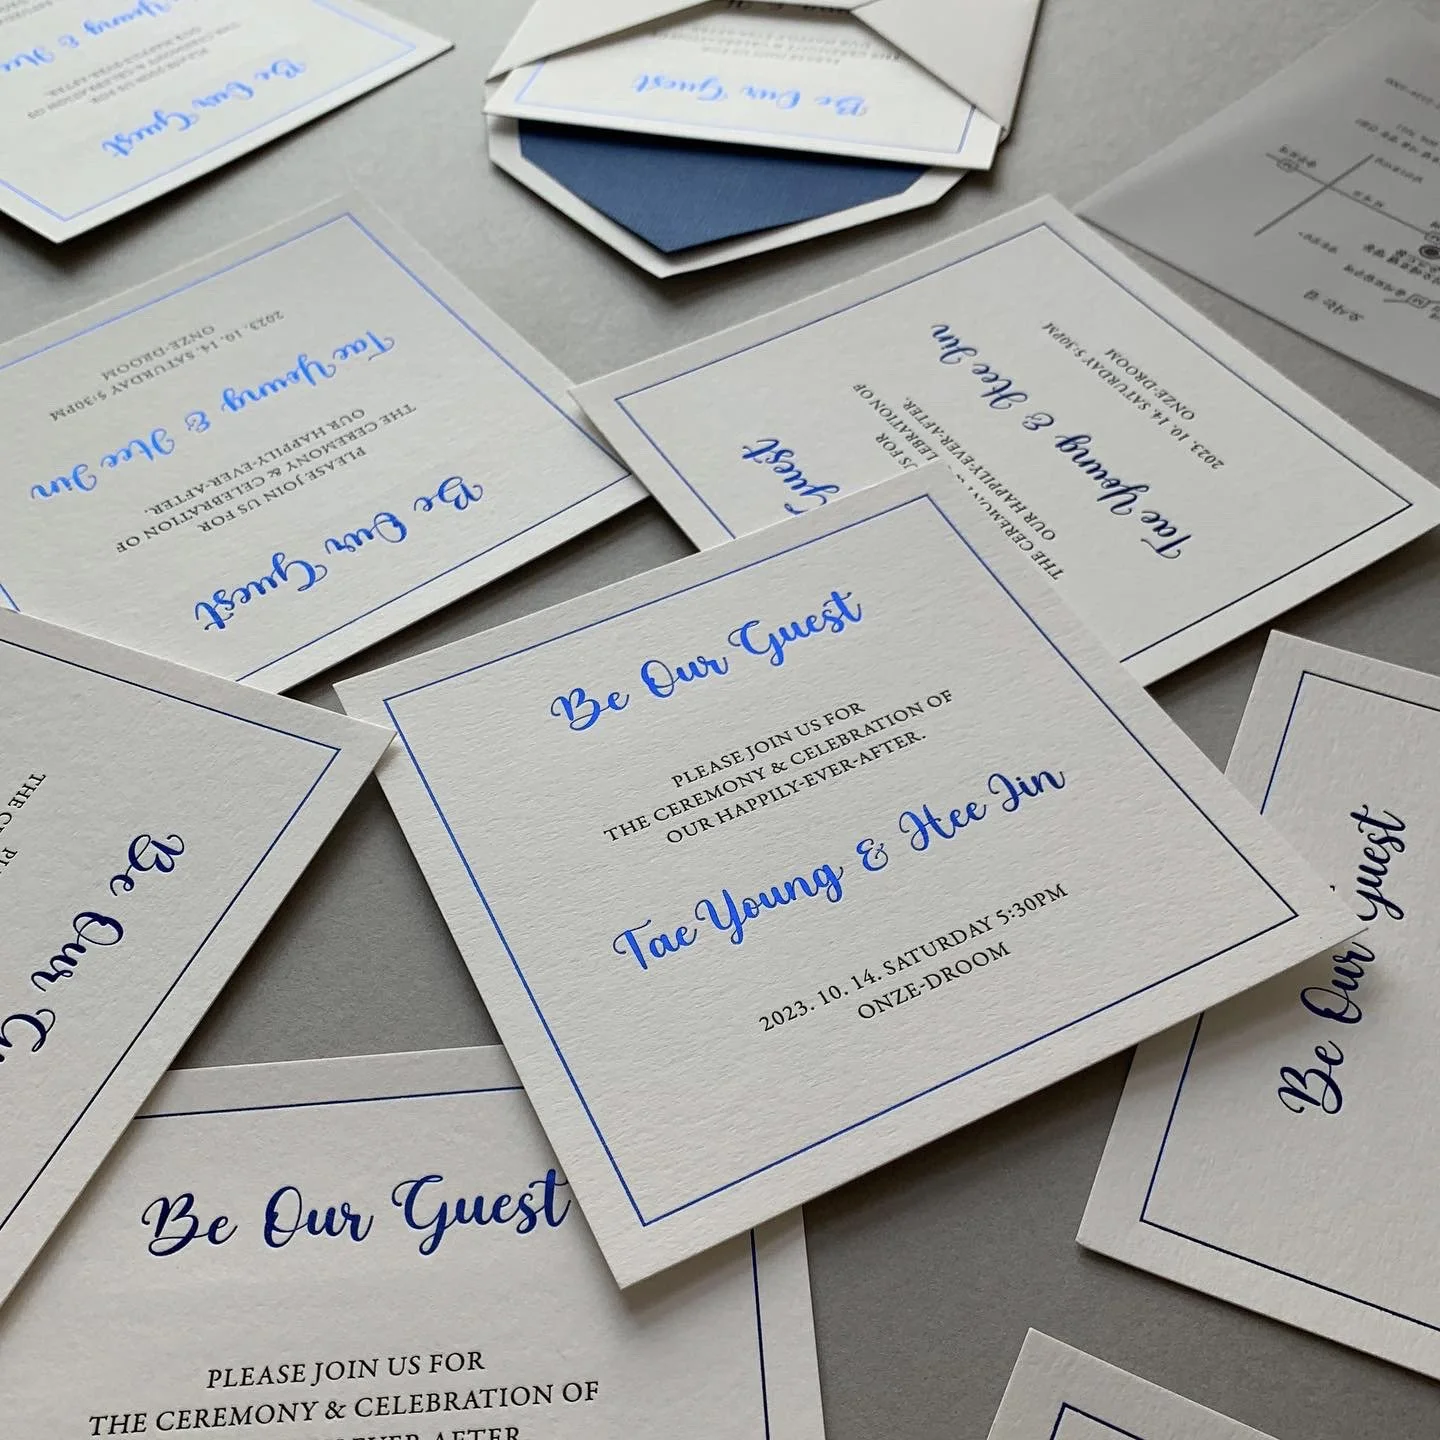 Be Our Guest
PLEASE JOIN US FOR
THE CEREMONY & CELEBRATION OF
OUR HAPPILY-EVER-AFTER.
Tae Young & Hee Jin
2023. 10. 14. SATURDAY 5:30PM
ONZE-DROOM
Be Our Guest
PLEASE JOIN US FOR
THE CEREMONY & CELEBRATION OF
Be Our Guest
PLEASE JOIN US FOR
THE CEREMONY & CELEBRATION OF
OUR HAPPILY-EVER-AFTER.
Tae Young & Hee Jin
2023. 10. 14. SATURDAY 5:30PM
ONZE-DROOM
Guest
US FOR
OUR HAPPILY-EVER-AFTER.
Tae Young & Hee Jin
2023. 10. 14. SATURDAY 5:30PM
ONZE-DROOM
Be Our Guest
Be Our
Be Our Guest
Be Our Guest
OUR HAPPILY-EVER-AFTER.
오시는 길